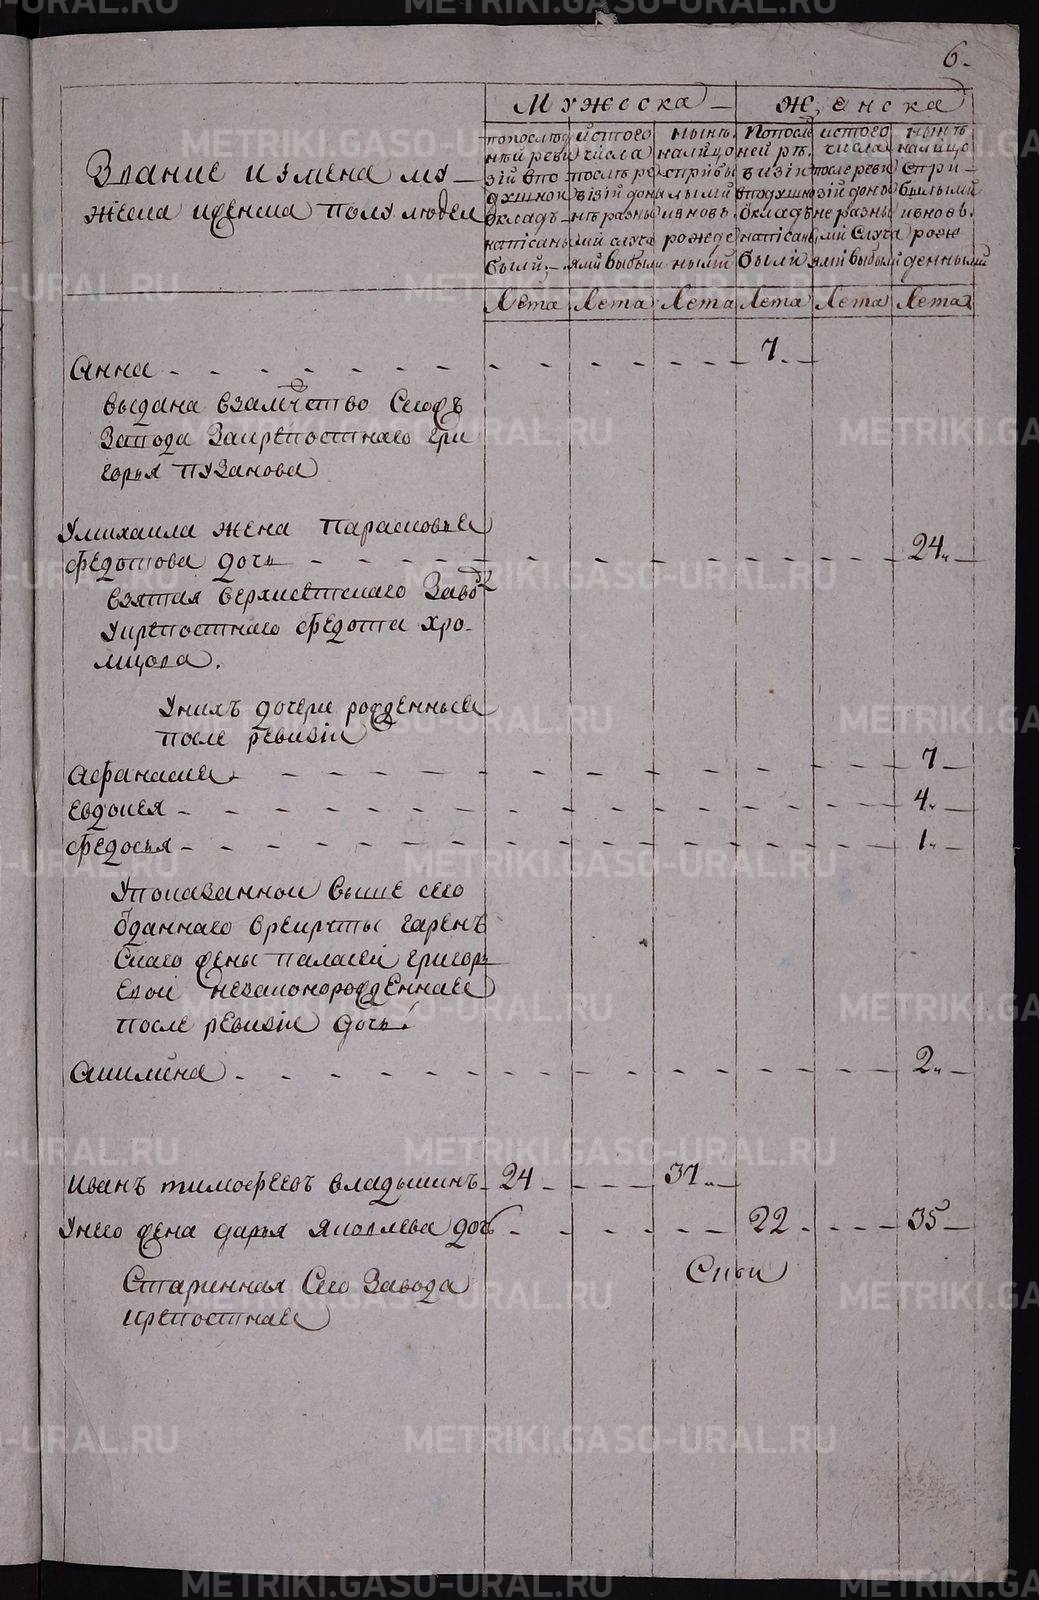 6.
Мужеска — Женска
Звание и имена му-
жеска и женска полу людеи
по последней ревизии в подушной окладъ написаны были
ис того числа после ревизии до ныне разными случаями выбыли
ныне на лицо с прибылыми и вновь рожденными
По последней ревизии в подушной окладъ написаны были
ис того числа после ревизии до ныне разными случаями выбыли
ныне на лицо с прибылыми и вновь рожденными
Лета Лета Лета Лета Лета Лета
Анна - - - 7. -
выдана взамуство сегожъ
завода закрепостнаго гри
горья пузанова
У михаила жена парасковья
федотова дочь - - - 24. -
взятая верхисетскаго завода
у крепостнаго федота хро-
мцова.
У нихъ дочери рожденные
после ревизiи
Афанасия - - - 7 -
евдокея - - - 4. -
федосья - - - 1. -
У показанной выше сего
отданнаго в рекруты
жены палагеи григорь
евой незаконорожденная
после ревизiи дочь.
Акилина - - - 2. -
Иванъ тимофеевъ владыкинъ - 24 - - - 31. -
У него жена дарья яковлева дочь - - - 22 - - - 35 -
Старинная сего завода
крепостная